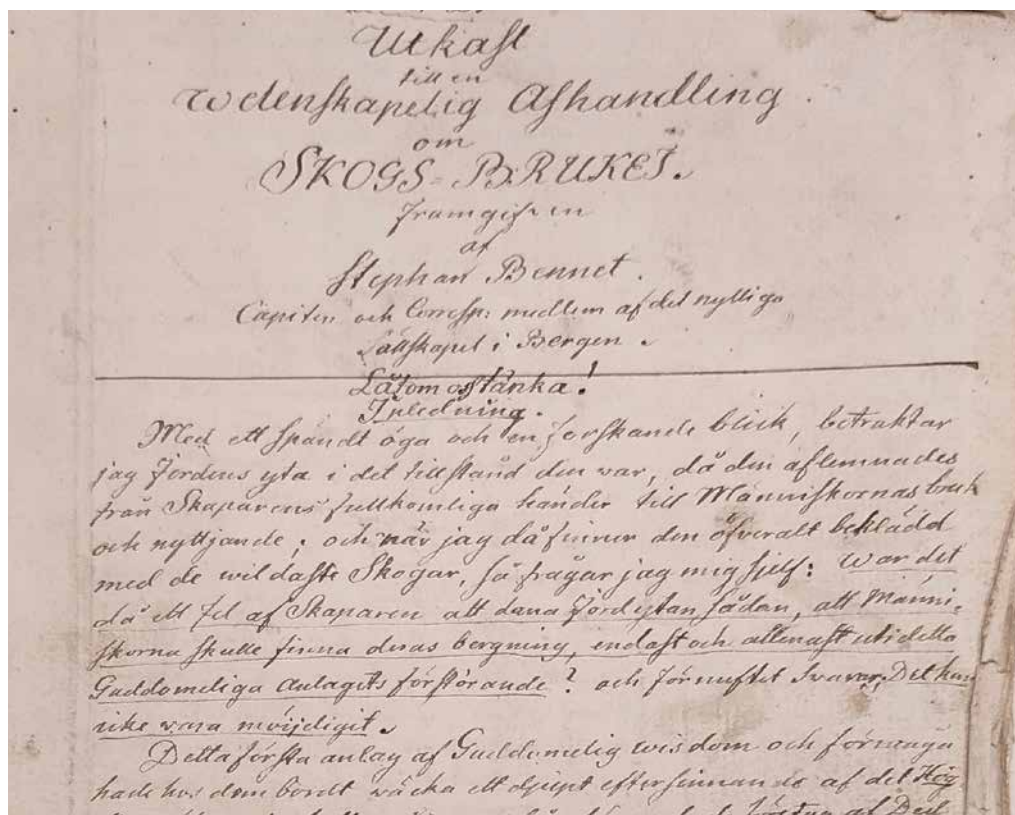 Utkast
till en
wetenskapelig Afhandling
om
SKOGS-BRUKET.
framgifven
af
Stephan Bennet.
Capiten och Corresp: medlem af det nyttiga
Sällskapet i Bergen.
Låtom oss tänka!
Inledning.
Med ett spändt öga och en forskande blick, betraktar
jag Jordens yta i det tillstånd den war, då den aflemnades
från Skaparens fullkomliga händer till Människornas bruk
och nyttjande; och när jag då finner den öfveralt beklädd
med de wildaste Skogar, så frågar jag mig sjelf: War det
då ett fel af Skaparen att dana Jordytan sådan, att Männi-
skorna skulle finna deras bergning, endast och allenast uti detta
Guddomeliga anlagets förstörande? och förnuftet Swarar: Det kan
icke wara möijeligit.
Detta första anlag af Guddomelig wisdom och
hade hos dem bordt wäcka ett djupt eftersinnande af det Hög-